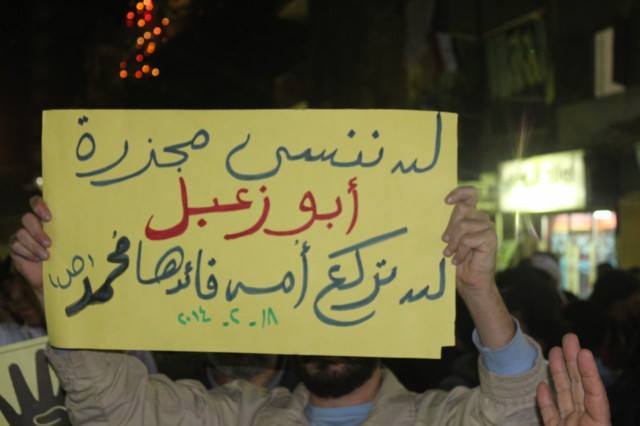 لن ننسى مجزرة
أبو زعبل
لن تركع أمه قائدها محمد (ص)
١٨ - ٢ - ٢٠١٤